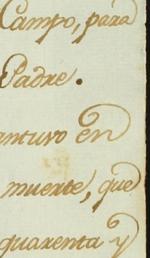 Campo, para
Padre.
antuvo en
muerte, que
quarenta y